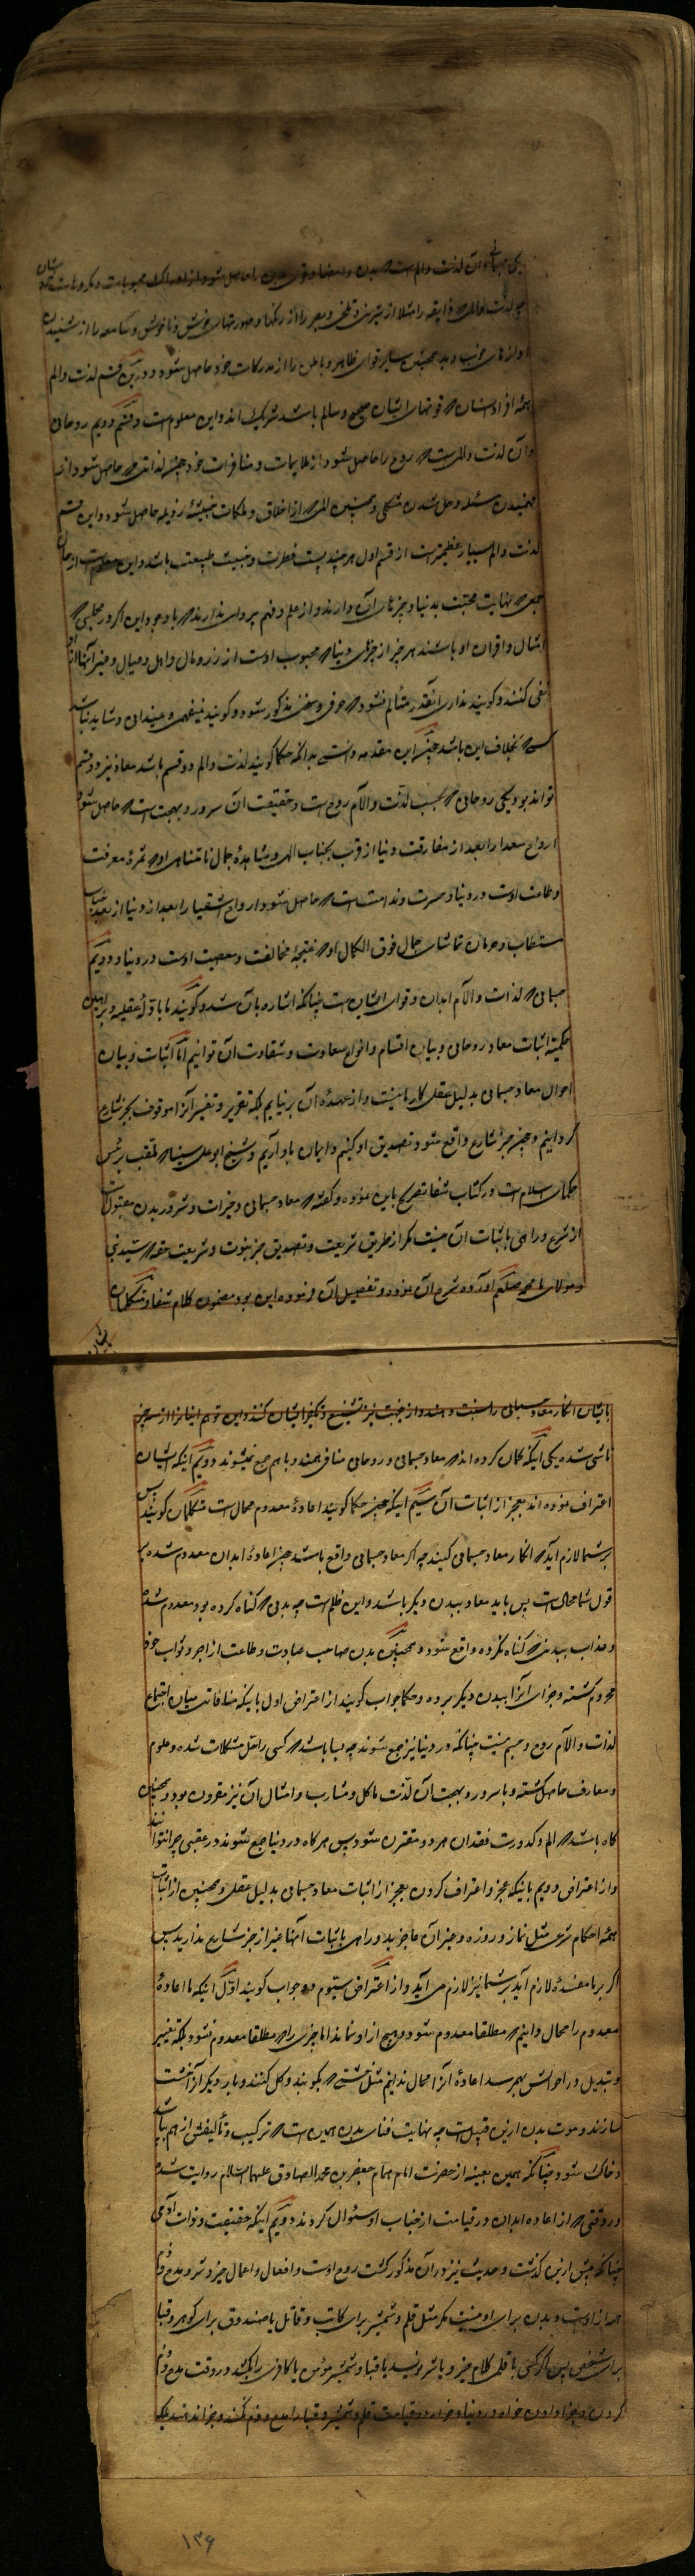 یکی جسمانی و آن لذت و الم است که بدن و اعضا و قوی بدن را حاصل شود از ادراک محبوبات و مکروهات شان
چه لذت و المی که ذایقه را مثلا از شیرینی و تلخی و بصر را از رنگها و صورتهای خوش و ناخوش و سامعه را از شنیدن
اوازهای خوب و بد همچنین سایر قوای ظاهر و باطن را از مدرکات خود حاصل شود و درین قسم لذت و الم
همه افراد انسان که قوتهای ایشان صحیح و سالم باشد شریک اند و این معلوم است و قسم دویم روحانی
و آن لذت و المی است که روح را حاصل شود از ملایمات و منافرات خود چنانچه لذاتی که حاصل شود از
فهمیدن مسئله و حل شدن مشکلی و همچنین المی که از اخلاق و ملکات خبیثهٔ رذیله حاصل شود و این قسم
لذت و الم بسیار عظیمتر است از قسم اول هر چند پست فطرت و خبیث طبیعت باشد و این معلوم است از حال
جمعی که نهایت محبت بدنیا و چیزهای آن دارند و از علم و فهم پروای ندارند که با وجود این اگر در مجلسی که
امثال و اقران او باشند هر چیز از چیزهای دنیا که محبوب اوست از زر و مال و اهل و عیال و غیر آنها از او
نفی کنند و گویند نداری آنقدر متألم نشود که حرفی و سخنی مذکور شود و گویند نمیفهمی و نمیدانی و شاید نباشد
کسی که بخلاف این باشد چون این مقدمه دانستی بدانکه حکما گویند لذت و الم دو قسم باشد معاد نیز دو قسم
تواند بود یکی روحانی که بحسب لذت و آلام روح است و حقیقت آن سرور و بهجت است که حاصل شود
ارواح سعدا را بعد از مفارقت دنیا از قرب بجناب الهی و مشاهدهٔ جمال نامتناهی او که ثمرهٔ معرفت
و طاعت اوست در دنیا و حسرت و ندامت است که حاصل شود ارواح اشقیا را بعد از دنیا از بعد جناب
مستطاب و حرمان تماشای جمال فوق الکمال او که نتیجهٔ مخالفت و معصیت اوست در دنیا و دویم
جسمانی که لذات و آلام ابدان و قوای ایشان است چنانکه اشاره بآن شد و گویند ما بادلهٔ عقلیه و براهین
حکمیّه اثبات معاد روحانی و بیان اقسام و انواع سعادت و شقاوت آن توانیم اما اثبات و بیان
احوال معاد جسمانی بدلیل عقل کار ما نیست و از عهدهٔ آن بر نیایم بلکه تقریر و تفسیر آنرا موقوف بخبر شارع
گردانیم و چون خبر شارع واقع شود تصدیق او کنیم و ایمان باو آریم و شیخ ابو علی سینا که ملقب برئیس
حکمای اسلام است در کتاب شفا تصریح باین نموده و گفته که معاد جسمانی و خیرات و شرور بدن مقبول است
از شرع و راهی باثبات آن نیست مگر از طریق شریعت و تصدیق خبر نبوت و شریعت حقه که سید نبی
و مولای ما محمد صلعم آورده شرح آن نموده و تفصیل آن فرموده این بود مضمون کلام شفا و متکلمان
بایشان
بایشان انکار معاد جسمانی را نسبت دهند و از جهت نیز تشنیع و تکفیر ایشان کنند و این توهم ایشانرا از سه چیز
ناشی شده یکی اینکه گمان کرده اند که معاد جسمانی و روحانی منافی همند و باهم جمع نمیشوند دویم اینکه ایشان
اعتراف نموده اند بعجز از اثبات آن سیم اینکه چون حکما گویند اعادهٔ معدوم محال است متکلمان گویند پس
بر شما لازم آید که انکار معاد جسمانی کنید چه اگر معاد جسمانی واقع باشد چون اعادهٔ ابدان معدوم شده به
قول شما محال است پس باید معاد ببدن دیگر باشد و این ظلم است چه بدنی که گناه کرده بود معدوم شده
و عذاب ببدنی که گناه نکرده واقع شود و همچنین بدن صاحب عبادت و طاعت از اجر و ثواب خود
محروم گشته و جزای آنرا ببدن دیگر برده و حکما جواب گویند از اعتراض اول باینکه منافات میان اجتماع
لذات و آلام روح و جسم نیست چنانکه در دنیا نیز جمع شوند چه بسا باشد که کسی را حل مشکلات شده و علوم
و معارف حاصل گشته و با سرور و بهجت آن لذت ماکل و مشارب و امثال آن نیز مقرون بود و همچنین
گاه باشد که الم و کدورت فقدان هر دو مقترن شود پس هرگاه در دنیا جمع شوند در عقبی چرا نتوانند
و از اعتراض دویم باینکه عجز و اعتراف کردن بعجز از اثبات معاد جسمانی بدلیل عقلی و همچنین از اثبات
همه احکام شرعی مثل نماز و روزه و غیر آن عاجزید و راهی باثبات آنها غیر از خبر شارع ندارید پس
اگر بر ما مفسدهٔ لازم آید بر شما نیز لازم می آید و از اعتراض سیوم دو جواب گویند اوّل اینکه ما اعادهٔ
معدوم را محال دانیم که مطلقا معدوم شود و هیچ از او نماند اما چیزی را که مطلقا معدوم نشود بلکه تغییر
و تبدیل در احوالش بهم رسد اعادهٔ آنرا محال ندانیم مثل خشتی که بکوبند و گل کنند و بار دیگر آنرا خشت
سازند و موت بدن ازین قبیل است چه نهایت فنای بدن همین است که ترکیب و تألیفش از هم بپاشد
و خاک شود چنانکه همین بعینه از حضرت امام همام جعفر بن محمد الصادق علیهما السلام روایت شده
در وقتی که از اعاده ابدان در قیامت از جناب او سئوال کردند دویم اینکه حقیقت و ذات آدمی
چنانکه پیش ازین گذشت و حدیث نیز در آن مذکور گشت روح اوست و افعال و اعمال خیر و شر و مدح و ذم
همه از اوست و بدن برای او نیست مگر مثل قلم و شمشیر برای کاتب و قاتل یا صندوق برای گوهر و قبا
برای شخص پس اگر کسی با قلمی کلام خیر و یا شر نویسد یا قبا و شمشیر مؤمن یا کافری را بکشد در وقت مدح و ذم
کردن و جزا دادن خواه در دنیا و خواه در قیامت قلم و شمشیر و قبا را مدح و ذم نکنند و جزا ندهند بلکه
۱۳۶